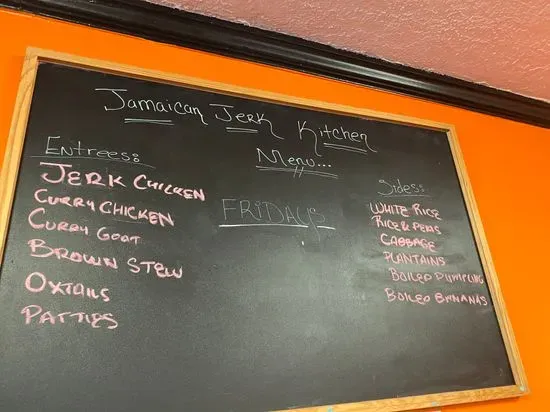 Jamaican Jerk Kitchen
Menu...
Entrees:
JERK CHICKEN
CURRY CHICKEN
CURRY GOAT
BROWN STEW
OXTAILS
PATTIES
FRIDAYS
Sides:
WHITE RICE
RICE & PEAS
CABBAGE
PLANTAINS
BOILED DUMPLING
BOILED BANANAS